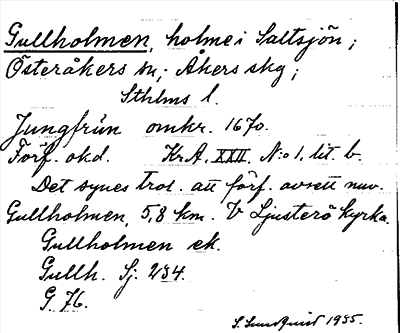 Gullholmen, holme i Saltsjön;
Österåkers sn; Åkers skg;
Sthlms l.
Jungfrun omkr. 1670.
Förf. okd. Kr.A. XXII, N:o 1, lit. b.
Det synes trol. att förf. avsett nuv.
Gullholmen, 5,8 km. V Ljusterö kyrka.
Gullholmen ek.
Gullh. Sj. 234.
G. 76.
S. Sundquist 1935.